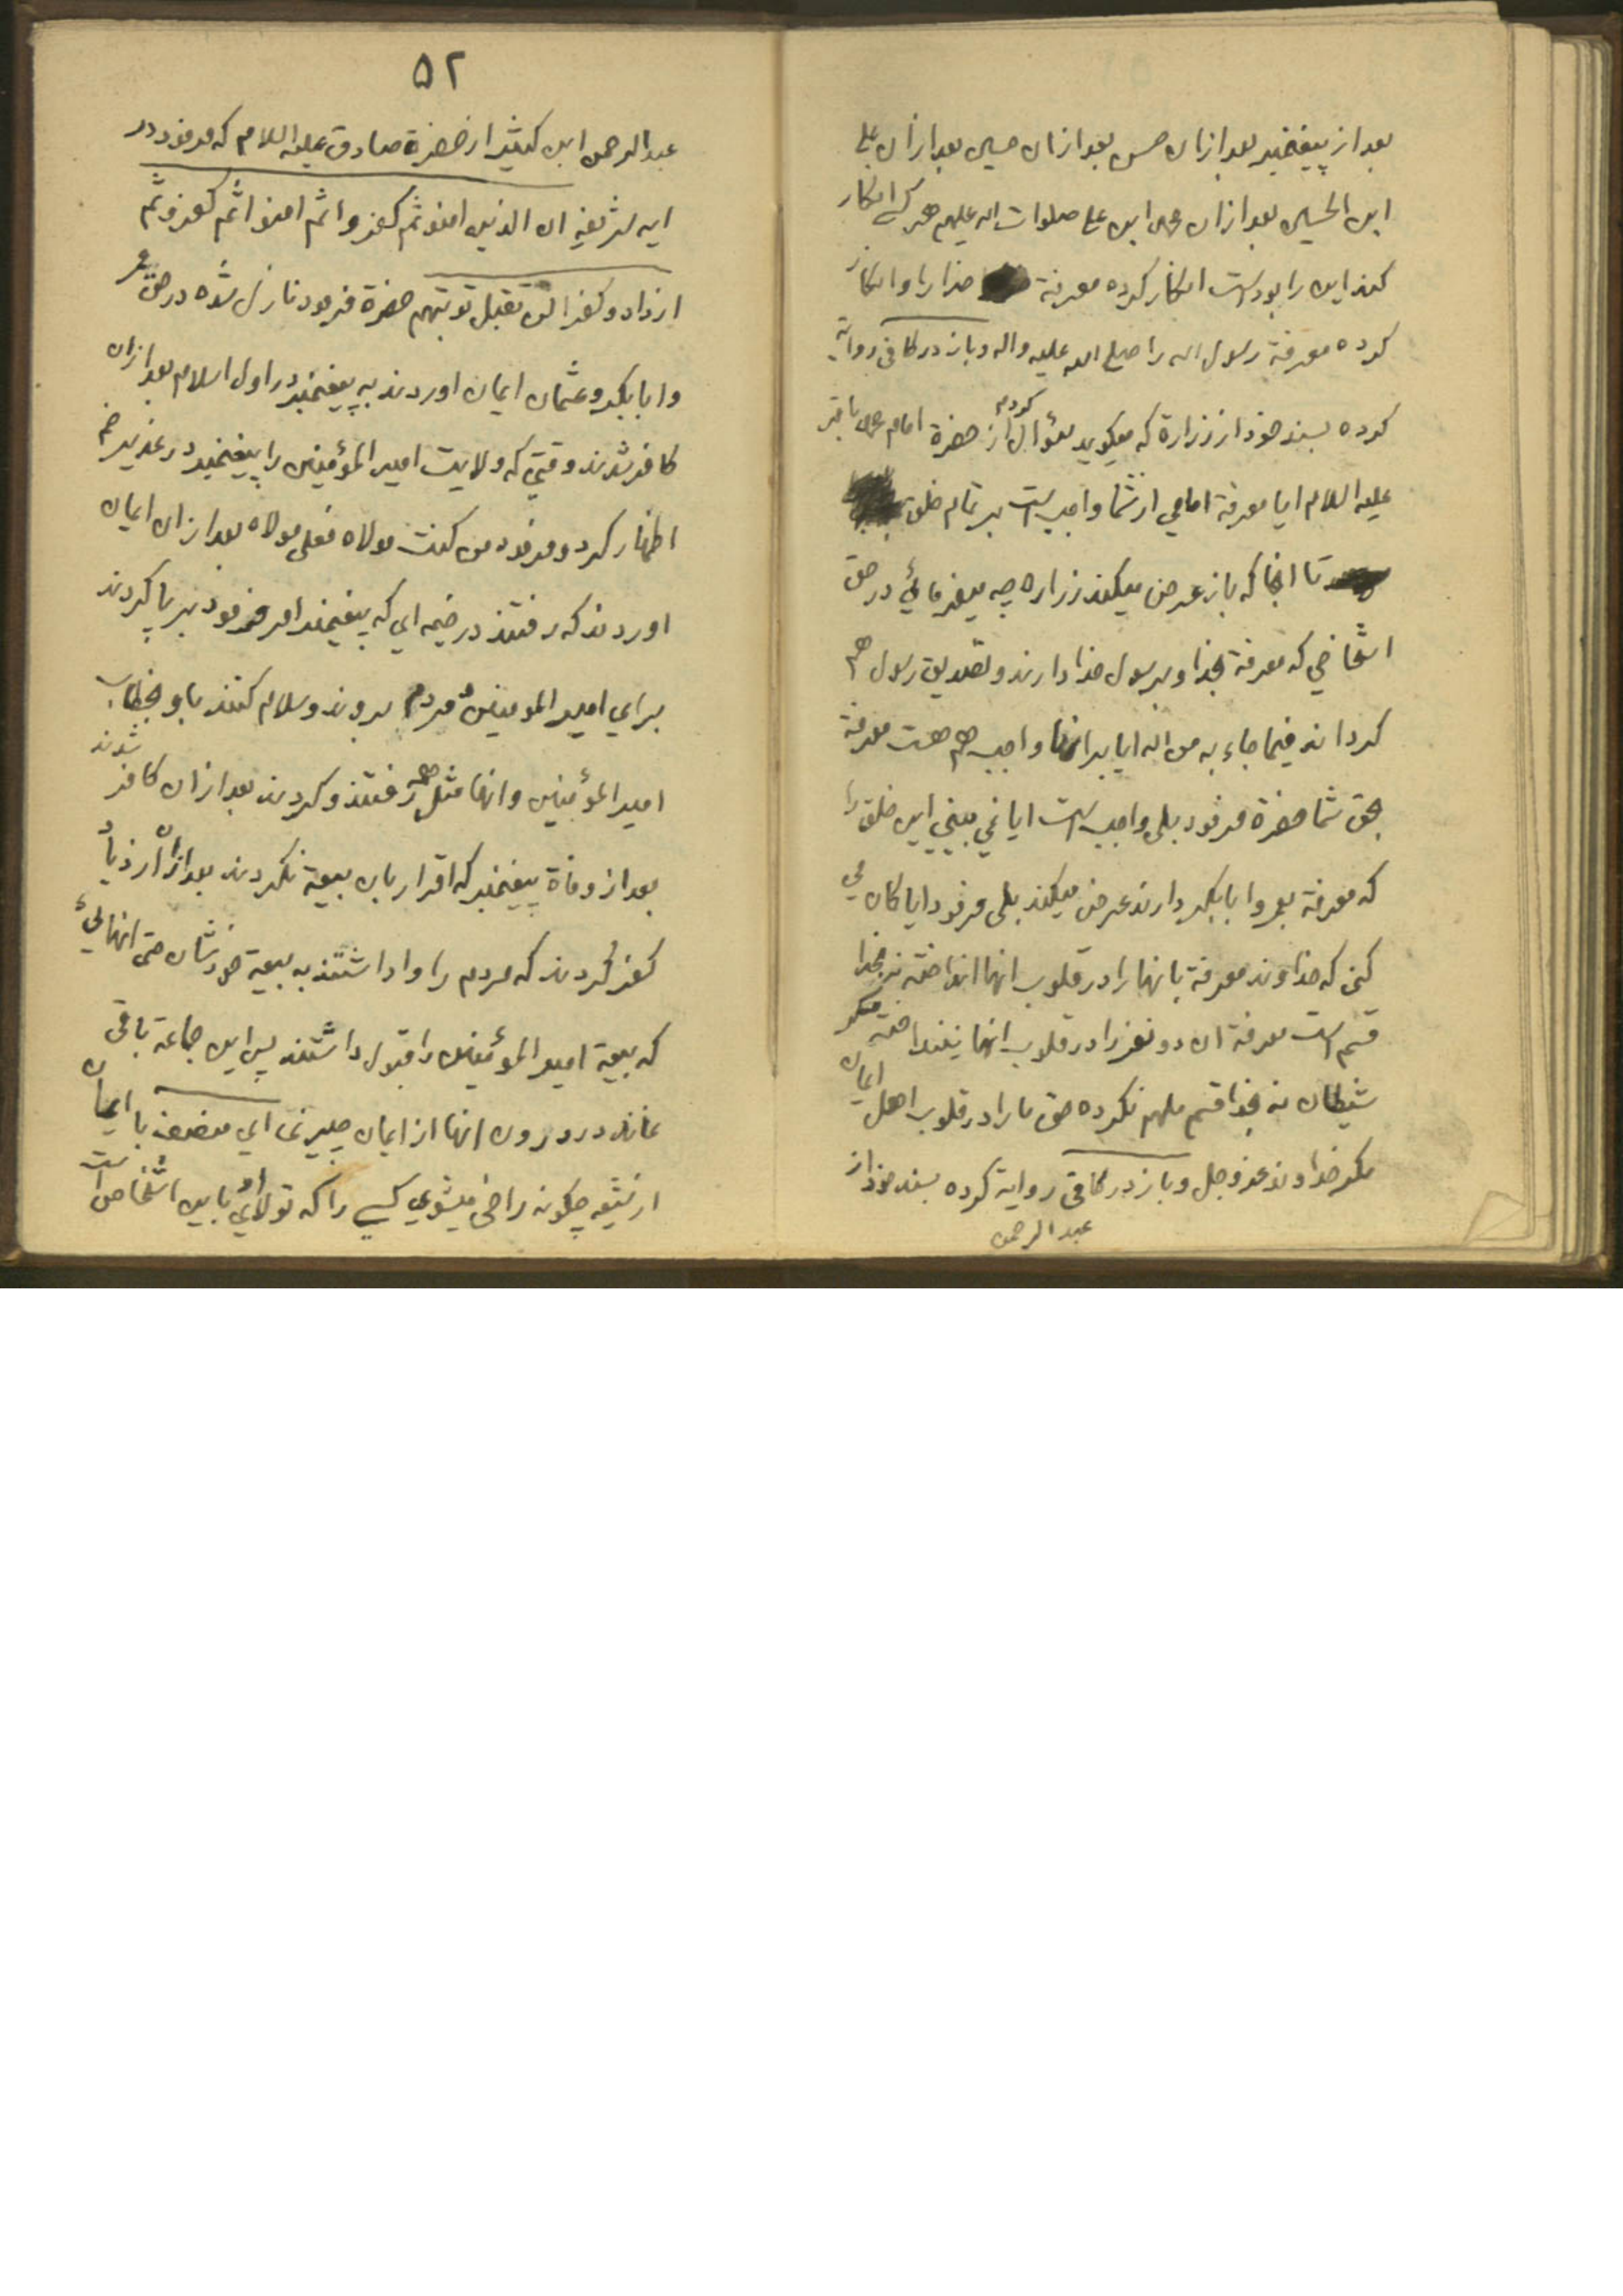 بعد از پیغمبر بعد ازان حسن بعد ازان حسین بعد ازان علی
ابن الحسین بعد ازان محمد ابن علی صلوات اله علیهم هر کسی انکار
کند این را بوده است انکار کرده معرفة خدا را و انکار
کرده معرفة رسول اله را صلی الله علیه واله و باز در کافی روایة
کرده بسند خود از زرارة که میگوید سؤال کردم از حضرة امام محمد باقر
علیه السلام ایا معرفة امامی از شما واجب است بر تمام خلق
تا انجا که باز عرض میکند زراره چه میفرمائی در حق
اشخاصی که معرفة بخدا و برسول خدا دارند و تصدیق رسول هم
کرده اند فیما جاء به من اله ایا بر انها واجب هم هست معرفة
بحق شما حضرة فرمود بلی واجب است ایا نمی بینی این خلق را
که معرفة بعمر و ابابکر دارند عرض میکند بلی فرمود ایا کمان می
کنی که خداوند معرفة بانها را در قلوب انها انداخته نه بخدا
قسم است معرفة ان دو نفر را در قلوب انها نینداخته مکر
شیطان نه بخدا قسم ملهم نکرده حق ما را در قلوب اهل ایمان
مکر خداوند عز وجل و باز در کافی روایة کرده بسند خود از
عبد الرحمن
۵۲
عبد الرحمن ابن کثیر از حضرة صادق علیه السلام که فرمود در
ایه شریفه ان الذین امنو ثم کفرو اثم امنو اثم کفرو ثم
ازدادو کفرا لن تقبل توبتهم حضرة فرمود نازل شده در حق عمر
و ابابکر و عثمان ایمان اوردند به پیغمبر در اول اسلام بعد ازان
کافر شدند وقتی که ولایت امیر المؤمنین را پیغمبر در غدیر خم
اظهار کرد و فرمود من کنت مولاه فعلی مولاه بعد ازان ایمان
اوردند که رفتند در خیمه ای که پیغمبر امر فرمود بر پا کردند
برای امیر المومنین و مردم بروند و سلام کنند باو بخطاب
امیر المؤمنین و انها مثل همه رفتند و کردند بعد ازان کافر شدند
بعد از وفاة پیغمبر که اقرار بان بیعة نکردند بعد ازان ازدیاد
کفر کردند که مردم را وا داشتند به بیعة خودشان حتی انهائی
که بیعة امیر المؤمنین را قبول داشتند پس این جماعة باقی
نماند در درون انها از ایمان چیزی ای منصف با ایمان
از شیعه چکونه راضی میشوی کسی را که تولای او باین اشخاص است